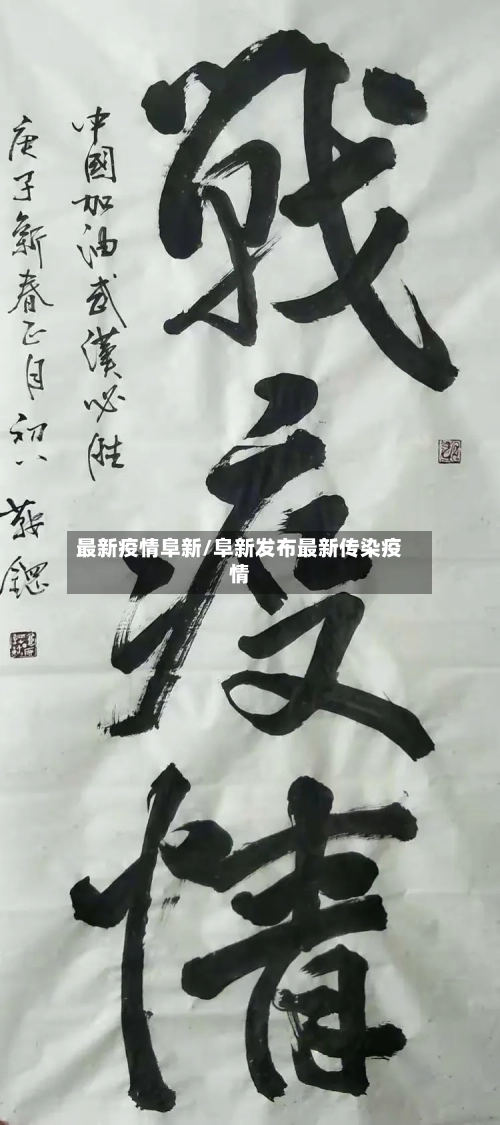 戰疫情
中國加油武漢必胜
庚子新春正月初八
最新疫情阜新/阜新发布最新传染疫
情